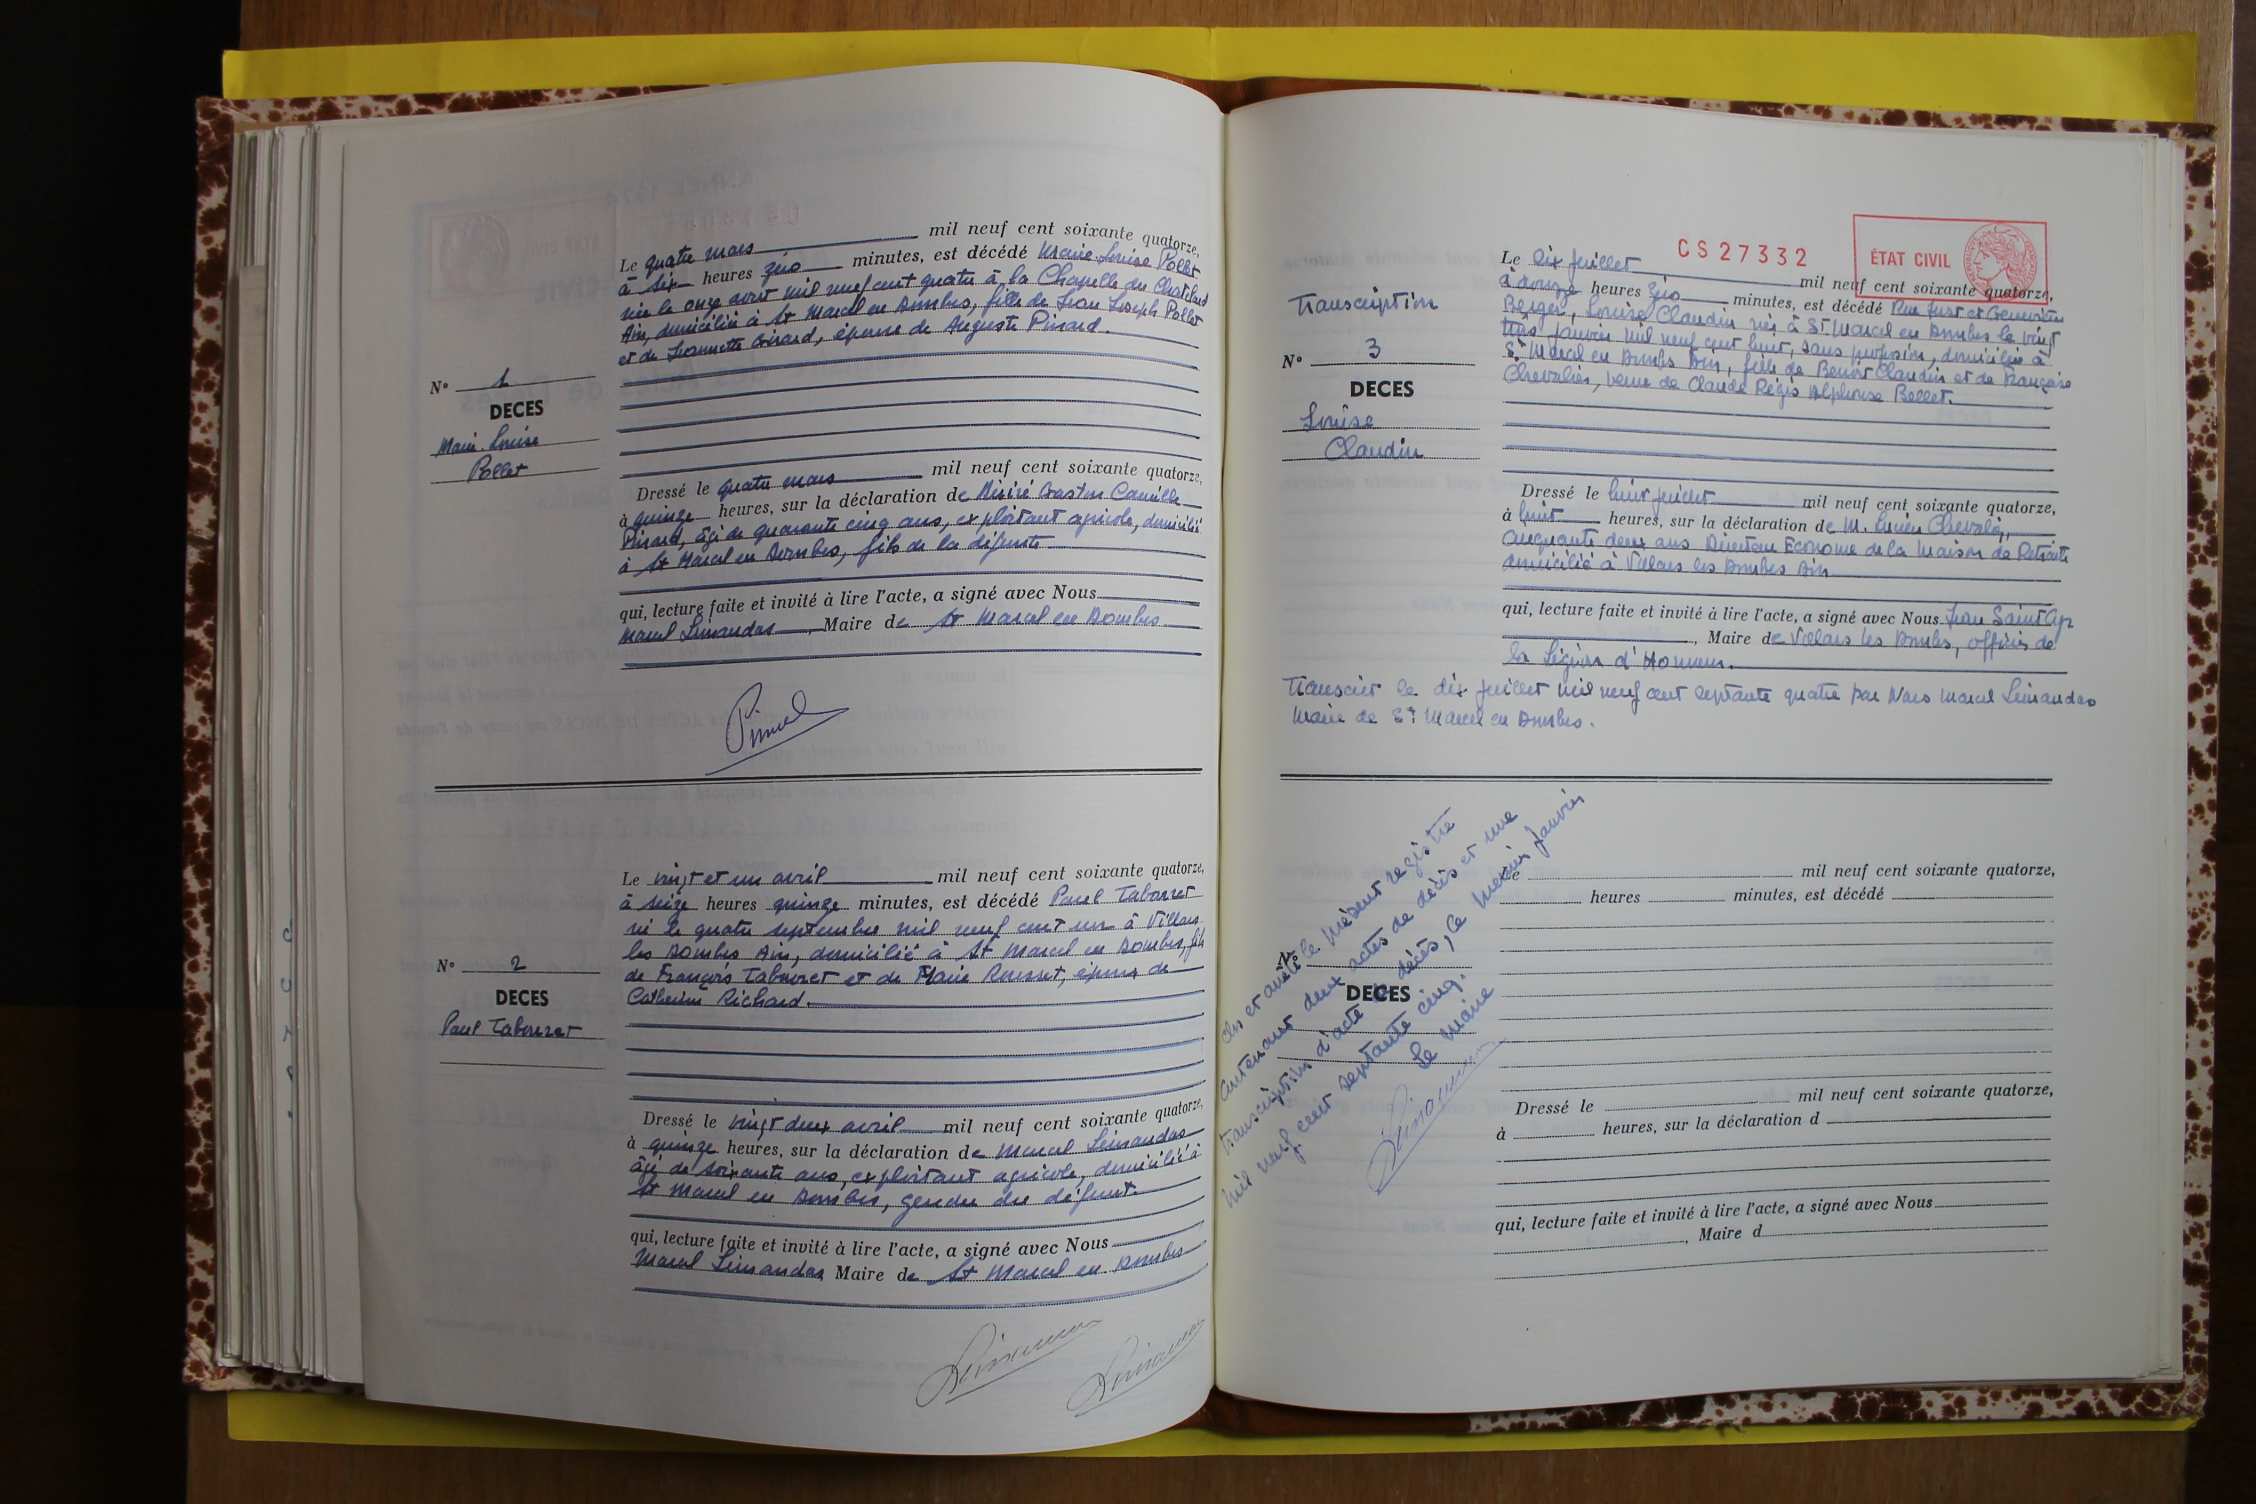 Le quatre mars mil neuf cent soixante quatorze,
à six heures zéro minutes, est décédé Marie-Louise Pollet
née le onze avril mil neuf cent quatre à la Chapelle du Chatelard
Ain, domiciliée à St Marcel en Dombes, fille de Jean Joseph Pollet
et de Jeannette, épouse de Auguste Pinard.
N° 1
DECES
Marie-Louise
Pollet
Dressé le quatre mars mil neuf cent soixante quatorze,
à quinze heures, sur la déclaration de Désiré Gaston Camille
Pinard, âgé de quarante cinq ans, exploitant agricole, domicilié
à St Marcel en Dombes, fils de la défunte
qui, lecture faite et invité à lire l'acte, a signé avec Nous
Marcel Limandas, Maire de St Marcel en Dombes
Le vingt et un avril mil neuf cent soixante quatorze,
à seize heures quinze minutes, est décédé Paul Tabouret
né le quatre septembre mil neuf cent un à Villars
les Dombes Ain, domicilié à St Marcel en Dombes, fils
de François Tabouret et de Marie Rousset, époux de
Catherine Richard.
N° 2
DECES
Paul Tabouret
Dressé le vingt deux avril mil neuf cent soixante quatorze,
à quinze heures, sur la déclaration de Marcel Limandas
âgé de soixante ans, exploitant agricole, domicilié à
St Marcel en Dombes, gendre du défunt.
qui, lecture faite et invité à lire l'acte, a signé avec Nous
Marcel Limandas Maire de St Marcel en Dombes
CS27332
ÉTAT CIVIL
Transcription
N° 3
DECES
Louise
Claudin
Le juillet mil neuf cent soixante quatorze,
à heures zéro minutes, est décédé Rue Just et Geneviève
Berger, Louise Claudin née à St Marcel en Dombes le vingt
trois janvier mil neuf cent huit, sans profession, domiciliée à
St Marcel en Dombes Ain, fille de Benoit Claudin et de Françoise
Chevalier, veuve de Claude Régis Alphonse Bellet.
Dressé le huit juillet mil neuf cent soixante quatorze,
à huit heures, sur la déclaration de M. Lucien
cinquante deux ans Directeur Econome de la Maison de Retraite
domicilié à Villars les Dombes Ain
qui, lecture faite et invité à lire l'acte, a signé avec Nous Jean Saint Cyr
, Maire de Villars les Dombes, officier de
la Légion d'Honneur.
Transcrit le dix juillet mil neuf cent septante quatre par Nous Marcel Limandas
Maire de St Marcel en Dombes.
Clos et arrêté le présent registre
contenant deux actes de décès et une
transcription d'acte de décès, le premier janvier
mil neuf cent septante cinq.
Le Maire
Le mil neuf cent soixante quatorze,
heures minutes, est décédé
N°
DECES
Dressé le mil neuf cent soixante quatorze,
à heures, sur la déclaration d
qui, lecture faite et invité à lire l'acte, a signé avec Nous
, Maire d